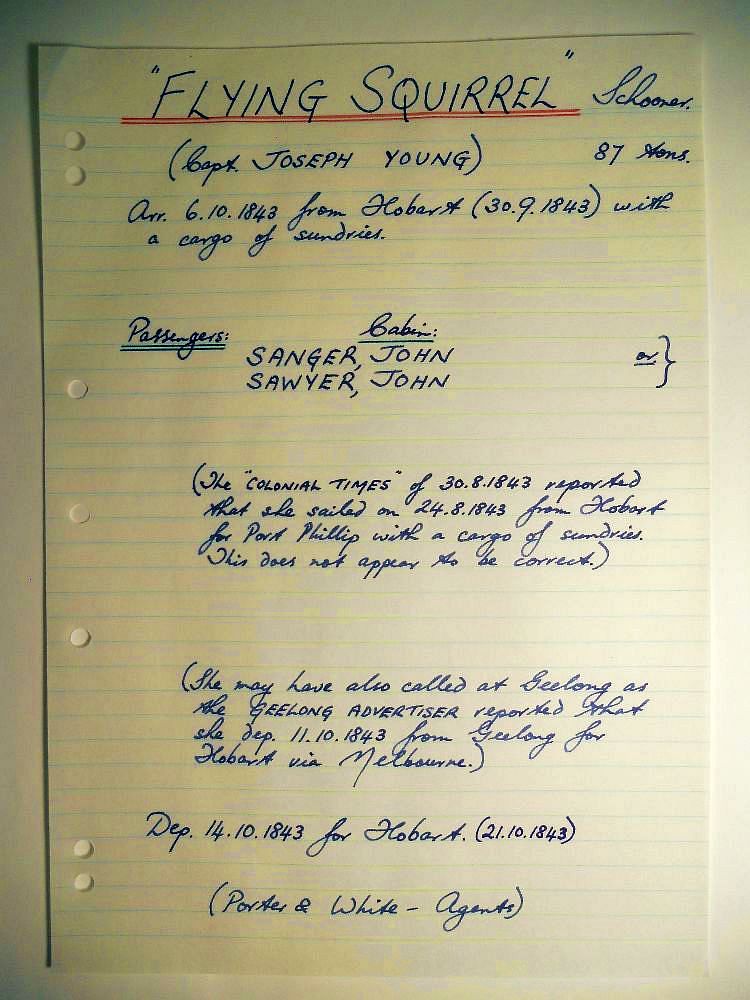 "FLYING SQUIRREL" Schooner.
(Capt. JOSEPH YOUNG) 87 tons.
Arr. 6.10.1843 from Hobart (30.9.1843) with
a cargo of sundries.
Passengers: Cabin:
SANGER, JOHN or }
SAWYER, JOHN
(The "COLONIAL TIMES" of 30.8.1843 reported
that she sailed on 24.8.1843 from Hobart
for Port Phillip with a cargo of sundries.
This does not appear to be correct.)
(She may have also called at Geelong as
the GEELONG ADVERTISER reported that
she dep. 11.10.1843 from Geelong for
Hobart via Melbourne.)
Dep. 14.10.1843 for Hobart. (21.10.1843)
(Porter & White - Agents)